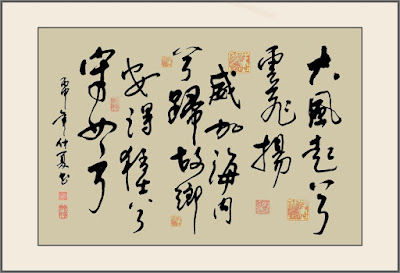 大風起兮
雲飛揚
威加海内
兮歸故鄉
安得猛士兮
守四方
丙申年仲夏书